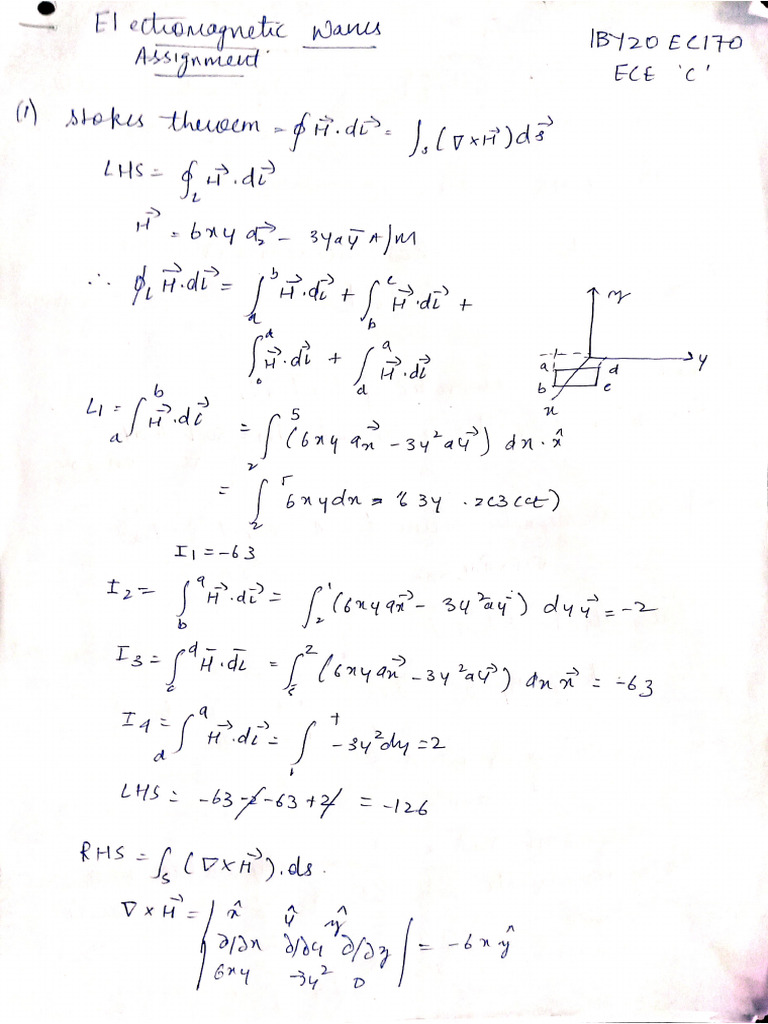 Electromagnetic Waves
Assignment
1BY20EC170
ECE 'C'
(1) Stokes theorem = ∮ H⃗.dl⃗ = ∫s (∇×H⃗) ds⃗
LHS = ∮L H⃗.dl⃗
H⃗ = 6xy ax⃗ - 3y ay⃗ A/M
∴ ∮L H⃗.dl⃗ = ∫a^b H⃗.dl⃗ + ∫b^c H⃗.dl⃗ +
∫c^d H⃗.dl⃗ + ∫d^a H⃗.dl⃗
z
y
a d
b c
x
L1 = ∫a^b H⃗.dl⃗ = ∫2^5 (6xy ax⃗ - 3y² ay⃗) dx.x̂
= ∫2^5 6xydx = 63y
I1 = -63
I2 = ∫b^a H⃗.dl⃗ = ∫2^1 (6xy ax⃗ - 3y² ay⃗) dy y⃗ = -2
I3 = ∫c^d H̄.dl̄ = ∫5^2 (6xy ax⃗ - 3y² ay⃗) dx x⃗ = -63
I4 = ∫d^a H⃗.dl⃗ = ∫1 -3y²dy = 2
LHS = -63 -2 -63 +2 = -126
RHS = ∫s (∇×H⃗).ds.
∇×H⃗ = | x̂ ŷ ẑ
∂/∂x ∂/∂y ∂/∂z | = -6x ẑ
6xy -3y² 0